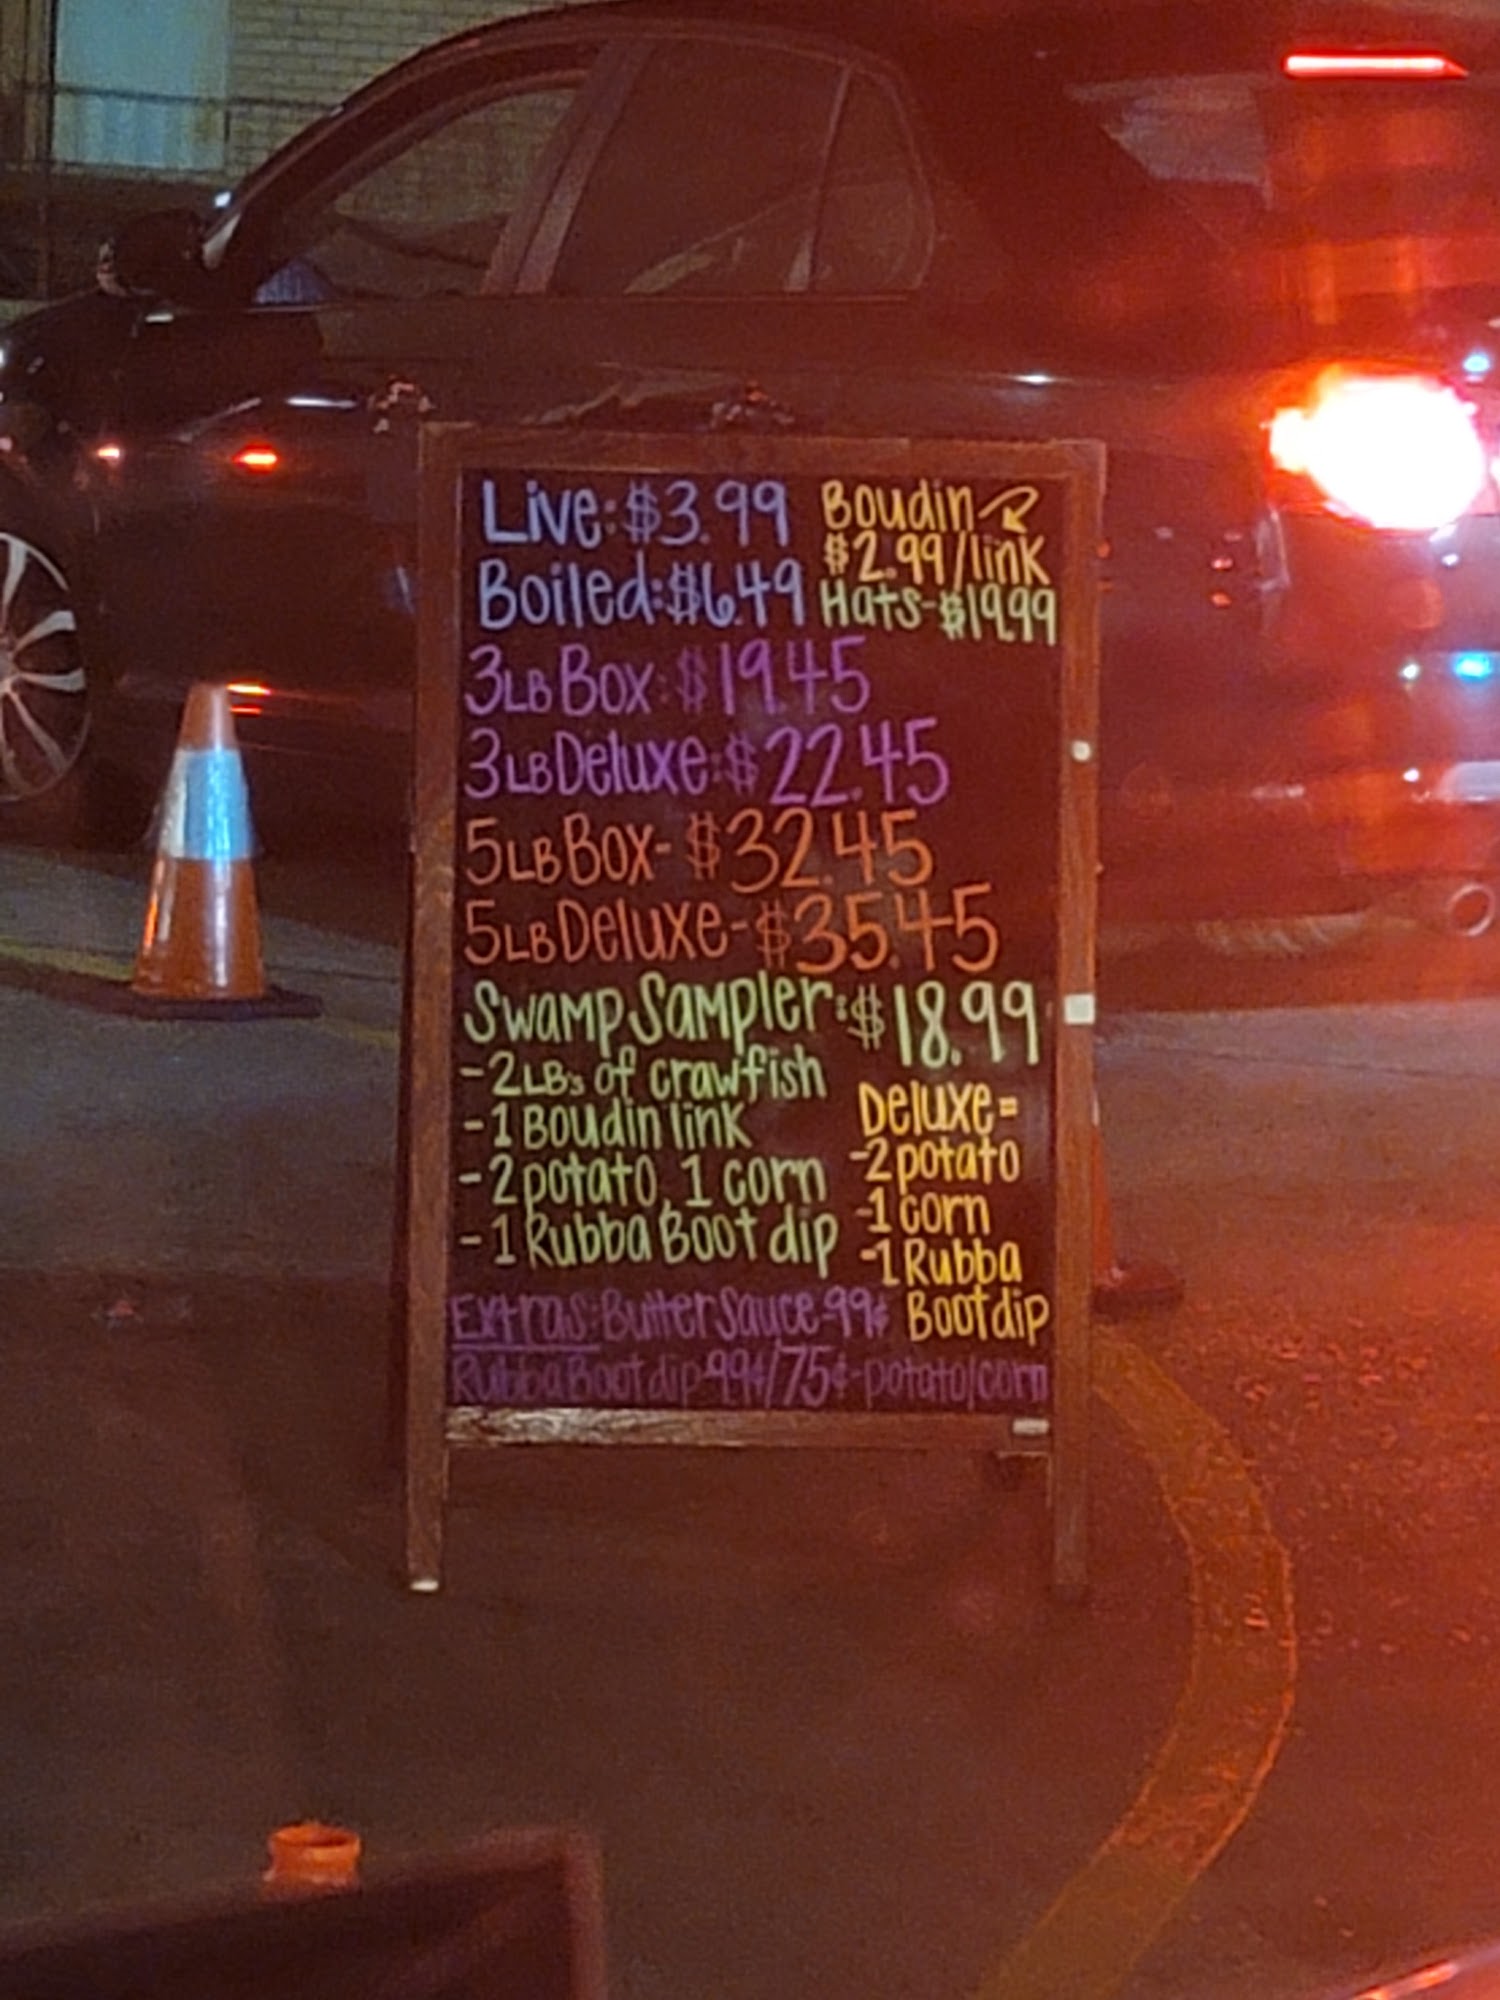 Live: $3.99
Boiled: $6.49
Boudin
$2.99/link
Hats-$19.99
3LB Box: $19.45
3LB Deluxe: $22.45
5LB Box- $32.45
5LB Deluxe- $35.45
Swamp Sampler: $18.99
-2LB's of crawfish
-1 Boudin link
-2 potato, 1 corn
-1 Rubba Boot dip
Deluxe=
-2 potato
-1 corn
-1 Rubba
Boot dip
Extras: Butter Sauce-99¢
Rubba Boot dip-99¢/75¢-potato/corn